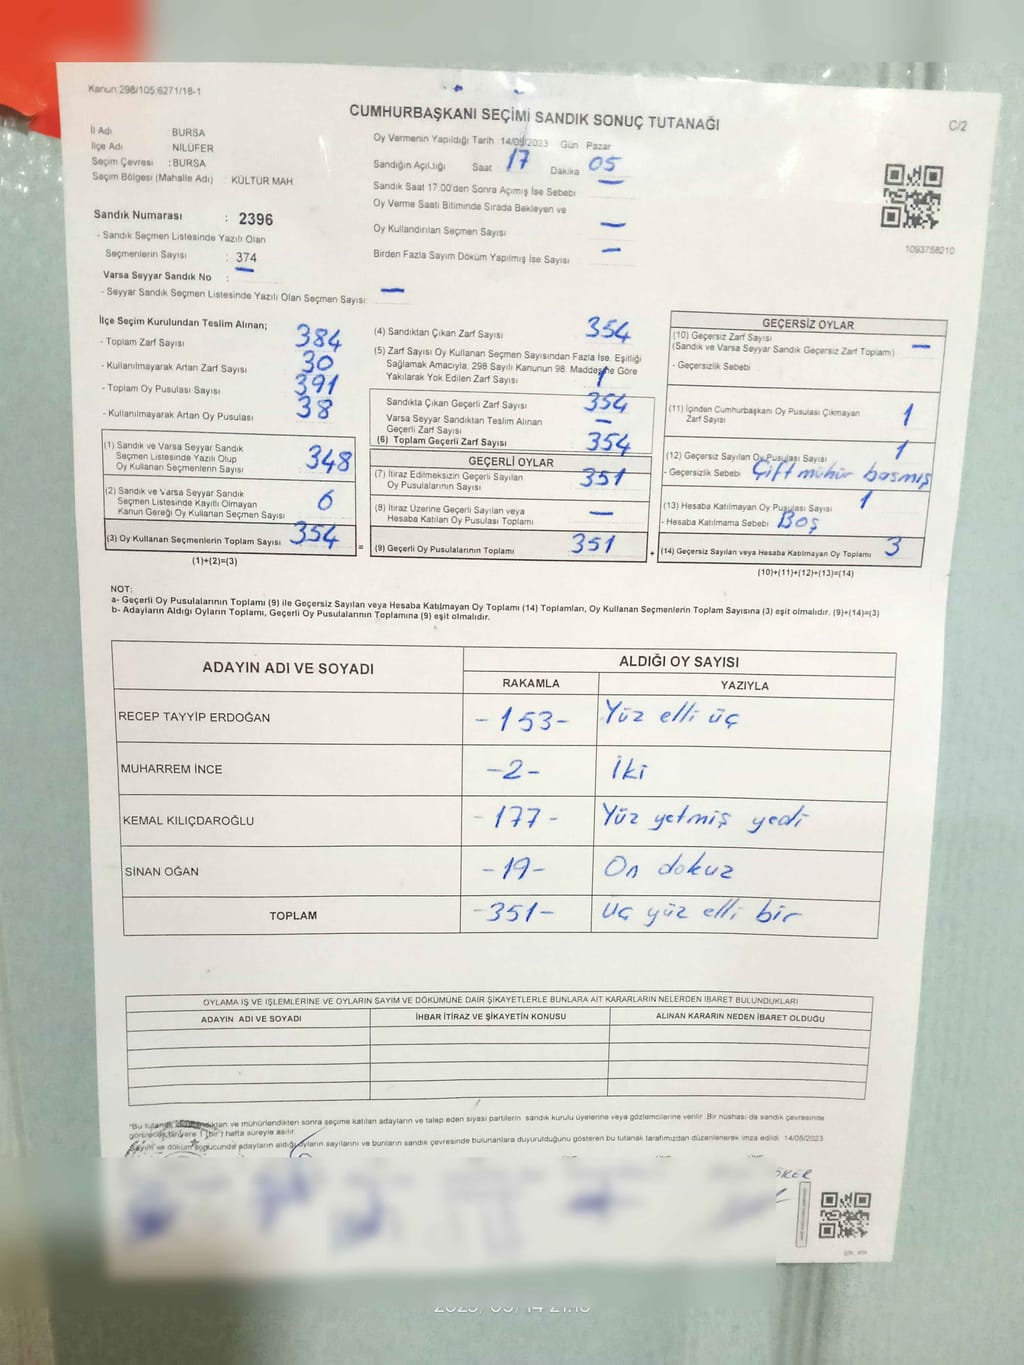 Kanun:298/105,6271/18-1
CUMHURBAŞKANI SEÇİMİ SANDIK SONUÇ TUTANAĞI
C/2
İl Adı BURSA
İlçe Adı NİLÜFER
Seçim Çevresi : BURSA
Seçim Bölgesi (Mahalle Adı) : KÜLTÜR MAH
Oy Vermenin Yapıldığı Tarih 14/05/2023 Gün Pazar
Sandığın Açıldığı Saat 17 Dakika 05
Sandık Saat 17:00'den Sonra Açılmış İse Sebebi —
Oy Verme Saati Bitiminde Sırada Bekleyen ve
Oy Kullandırılan Seçmen Sayısı —
Birden Fazla Sayım Döküm Yapılmış İse Sayısı —
1093758210
Sandık Numarası : 2396
- Sandık Seçmen Listesinde Yazılı Olan
Seçmenlerin Sayısı : 374
Varsa Seyyar Sandık No : —
- Seyyar Sandık Seçmen Listesinde Yazılı Olan Seçmen Sayısı: —
İlçe Seçim Kurulundan Teslim Alınan;
- Toplam Zarf Sayısı 384
- Kullanılmayarak Artan Zarf Sayısı 30
- Toplam Oy Pusulası Sayısı 391
- Kullanılmayarak Artan Oy Pusulası 38
(1) Sandık ve Varsa Seyyar Sandık
Seçmen Listesinde Yazılı Olup
Oy Kullanan Seçmenlerin Sayısı 348
(2) Sandık ve Varsa Seyyar Sandık
Seçmen Listesinde Kayıtlı Olmayan
Kanun Gereği Oy Kullanan Seçmen Sayısı 6
(3) Oy Kullanan Seçmenlerin Toplam Sayısı 354
(1)+(2)=(3)
=
(4) Sandıktan Çıkan Zarf Sayısı 354
(5) Zarf Sayısı Oy Kullanan Seçmen Sayısından Fazla İse, Eşitliği
Sağlamak Amacıyla, 298 Sayılı Kanunun 98. Maddesine Göre
Yakılarak Yok Edilen Zarf Sayısı 1
Sandıkta Çıkan Geçerli Zarf Sayısı 354
Varsa Seyyar Sandıktan Teslim Alınan
Geçerli Zarf Sayısı —
(6) Toplam Geçerli Zarf Sayısı 354
GEÇERLİ OYLAR
(7) İtiraz Edilmeksizin Geçerli Sayılan
Oy Pusulalarının Sayısı 351
(8) İtiraz Üzerine Geçerli Sayılan veya
Hesaba Katılan Oy Pusulası Toplamı —
(9) Geçerli Oy Pusulalarının Toplamı 351
+
GEÇERSİZ OYLAR
(10) Geçersiz Zarf Sayısı
(Sandık ve Varsa Seyyar Sandık Geçersiz Zarf Toplamı) —
- Geçersizlik Sebebi
(11) İçinden Cumhurbaşkanı Oy Pusulası Çıkmayan
Zarf Sayısı 1
(12) Geçersiz Sayılan Oy Pusulası Sayısı 1
- Geçersizlik Sebebi Çift mühür basmış
(13) Hesaba Katılmayan Oy Pusulası Sayısı 1
- Hesaba Katılmama Sebebi Boş
(14) Geçersiz Sayılan veya Hesaba Katılmayan Oy Toplamı 3
(10)+(11)+(12)+(13)=(14)
NOT:
a- Geçerli Oy Pusulalarının Toplamı (9) ile Geçersiz Sayılan veya Hesaba Katılmayan Oy Toplamı (14) Toplamları, Oy Kullanan Seçmenlerin Toplam Sayısına (3) eşit olmalıdır. (9)+(14)=(3)
b- Adayların Aldığı Oyların Toplamı, Geçerli Oy Pusulalarının Toplamına (9) eşit olmalıdır.
ADAYIN ADI VE SOYADI ALDIĞI OY SAYISI
RAKAMLA YAZIYLA
RECEP TAYYİP ERDOĞAN -153- Yüz elli üç
MUHARREM İNCE -2- İki
KEMAL KILIÇDAROĞLU -177- Yüz yetmiş yedi
SİNAN OĞAN -19- On dokuz
TOPLAM -351- Üç yüz elli bir
OYLAMA İŞ VE İŞLEMLERİNE VE OYLARIN SAYIM VE DÖKÜMÜNE DAİR ŞİKAYETLERLE BUNLARA AİT KARARLARIN NELERDEN İBARET BULUNDUKLARI
ADAYIN ADI VE SOYADI İHBAR İTİRAZ VE ŞİKAYETİN KONUSU ALINAN KARARIN NEDEN İBARET OLDUĞU
*Bu ve mühürlendikten sonra seçime katılan adayların ve talep eden siyasi partilerin sandık kurulu üyelerine veya gözlemcilerine verilir. Bir nüshası da sandık çevresinde
1 (bir) hafta süreyle asılır.
Sayım ve döküm sonucunda adayların aldığı oyların sayılarını ve bunların sandık çevresinde bulunanlara duyurulduğunu gösteren bu tutanak tarafımızdan düzenlenerek imza edildi 14/05/2023
2023/05/14 21:18